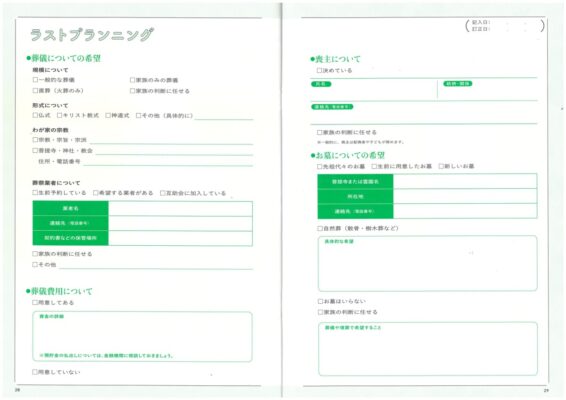 ラストプランニング
●葬儀についての希望
規模について
□一般的な葬儀 □家族のみの葬儀
□直葬（火葬のみ） □家族の判断に任せる
形式について
□仏式 □キリスト教式 □神道式 □その他（具体的に）
わが家の宗教
□宗教・宗旨・宗派
□菩提寺・神社・教会
住所・電話番号
葬祭業者について
□生前予約している □希望する業者がある □互助会に加入している
業者名
連絡先（電話番号）
契約書などの保管場所
□家族の判断に任せる
□その他
●葬儀費用について
□用意してある
資金の詳細
※預貯金の名出しについては、金融機関に相談しておきましょう。
□用意していない
28
記入日： ． ．
訂正日： ． ．
●喪主について
□決めている
氏名 続柄・関係
連絡先（電話番号）
□家族の判断に任せる
※一般的に、喪主は配偶者や子どもが務めます。
●お墓についての希望
□先祖代々のお墓 □生前に用意したお墓 □新しいお墓
菩提寺または霊園名
所在地
連絡先（電話番号）
□自然葬（散骨・樹木葬など）
具体的な希望
□お墓はいらない
□家族の判断に任せる
葬儀や埋葬で希望すること
29